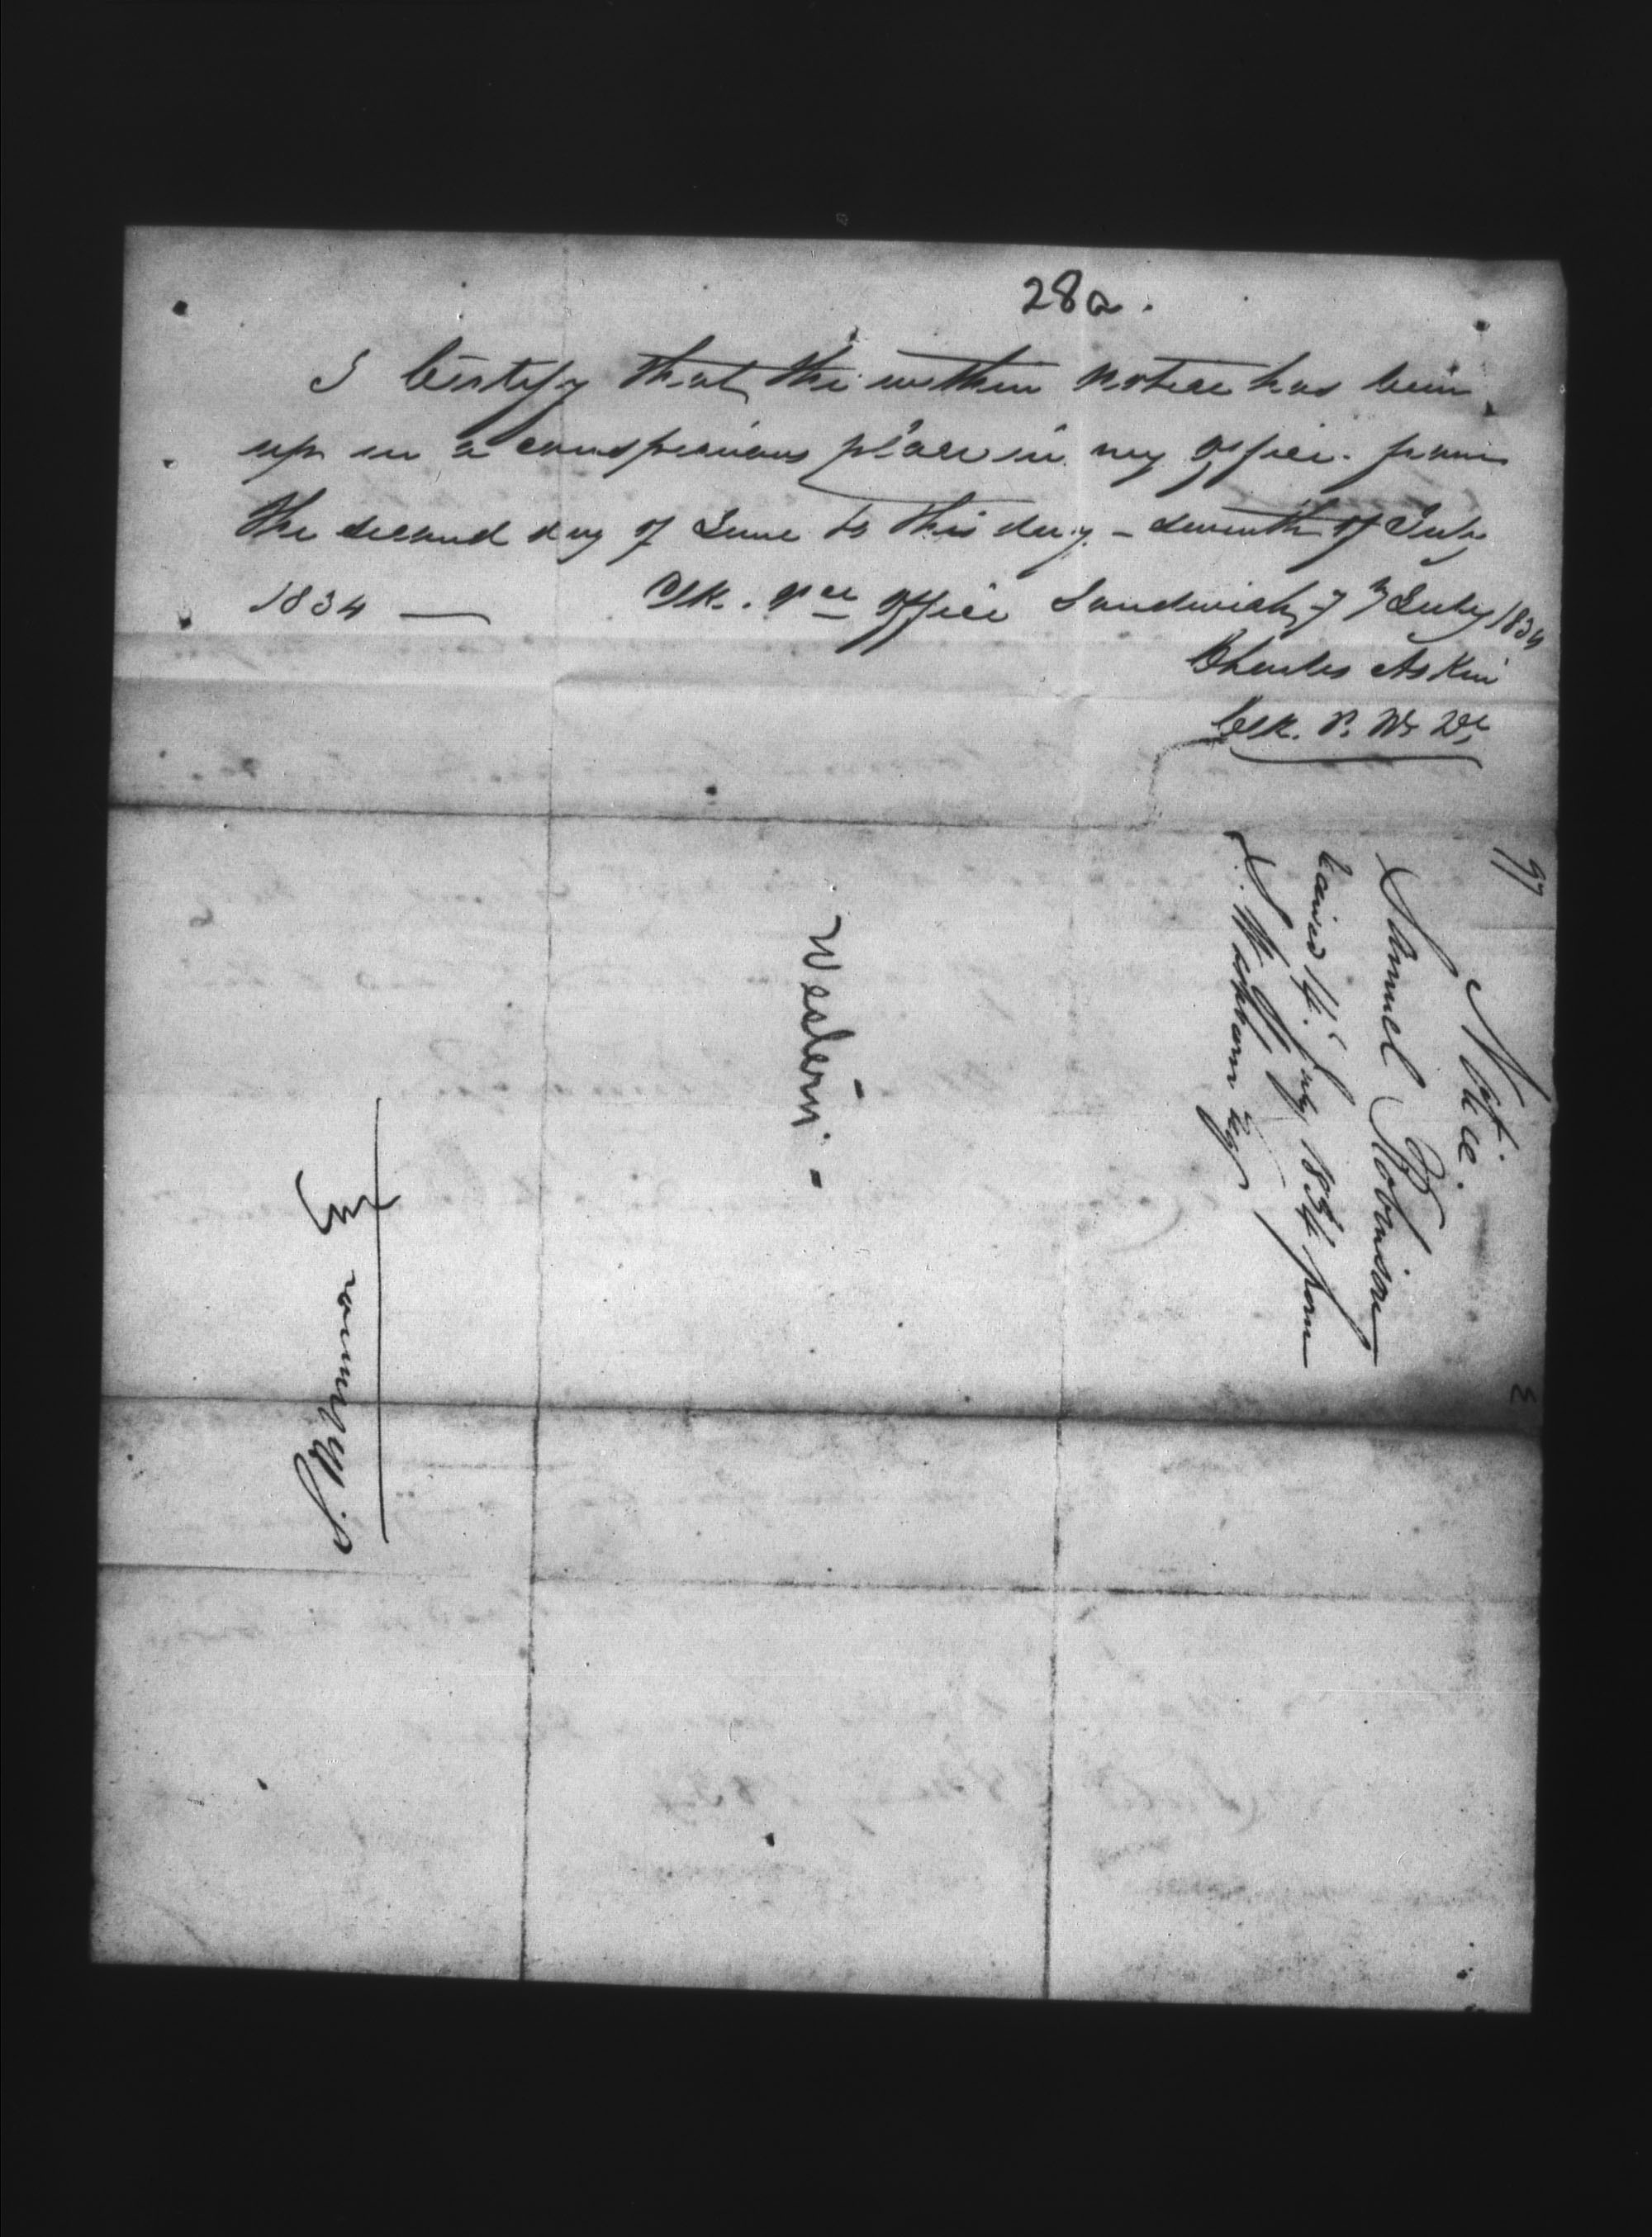 28a.
I Certify that the within Notice has been
up in a conspicuous place in my office from
the second day of June to this day - seventh of July
1834 — Clk. Pce office Sandwich 7th July 1834
Charles Askin
Clk. P. W. Dt
97
Notice
Samuel Robinson
July 1834 from
Western -